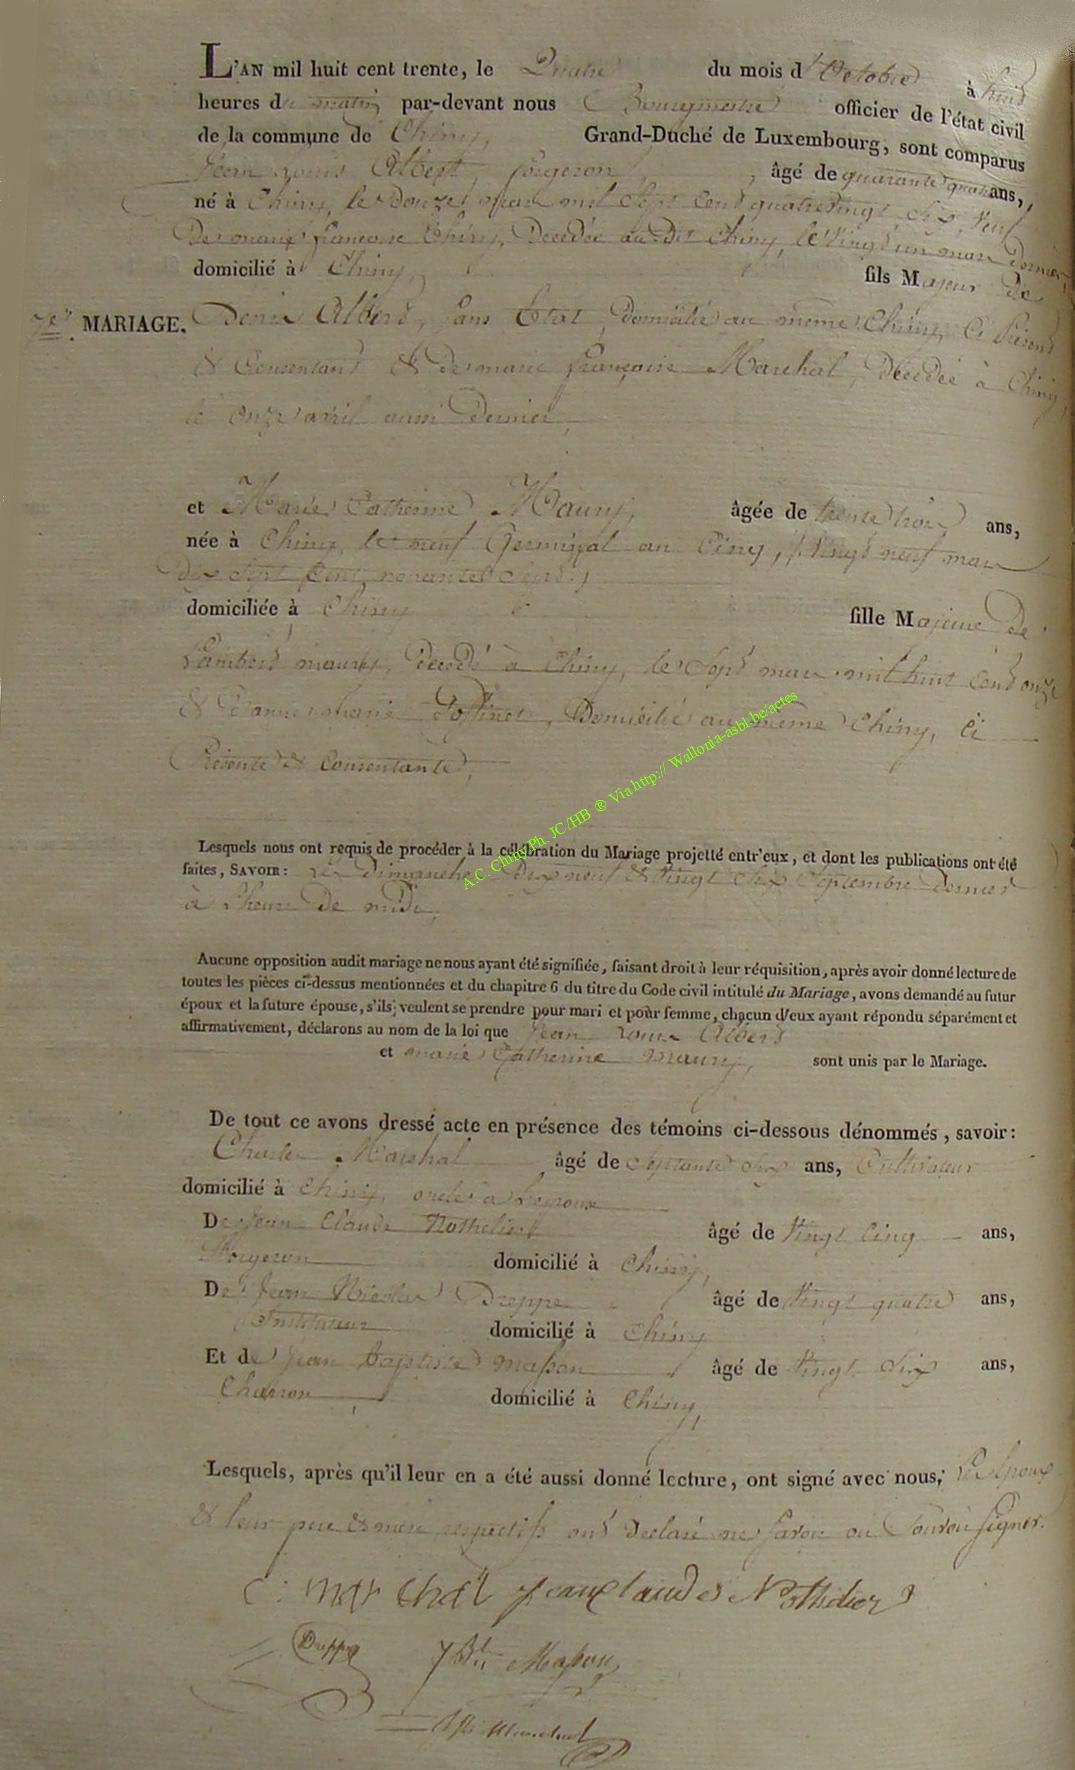 L'AN mil huit cent trente, le Quatre du mois d'Octobre à huit
heures du matin par-devant nous Bourgmestre officier de l'état civil
de la commune de Chiny, Grand-Duché de Luxembourg, sont comparus
Jean Louis Albert, forgeron, âgé de quarante quatre ans,
né à Chiny, le douze mars mil sept cent quatrevingt six, Veuf
de marie françoise Thiry, décédée au dit Chiny, le vingt un mars dernier,
domicilié à Chiny, fils Majeur de
7e MARIAGE. Denis Albert, sans Etat, domicilié au même Chiny, ci présent
& Consentant & de marie françoise Marchal, décédée à Chiny,
le onze avril aussi dernier,
et Marie Catherine Maury, âgée de trente trois ans,
née à Chiny, le neuf Germinal an Cinq, (Vingt neuf mars
dix sept cent nonante sept.)
domiciliée à Chiny fille Majeure de
Lambert maury, décédé à Chiny, le sept mars mil huit cent onze
& d'anne marie domicilié au même Chiny, ci
Présente & consentante,
Lesquels nous ont requis de procéder à la célébration du Mariage projetté entr'eux, et dont les publications ont été
faites, SAVOIR: Les dimanches dix neuf & vingt six Septembre dernier
à l'heure de midi,
Aucune opposition audit mariage ne nous ayant été signifiée, faisant droit à leur réquisition, après avoir donné lecture de
toutes les pièces ci-dessus mentionnées et du chapitre 6 du titre du Code civil intitulé du Mariage, avons demandé au futur
époux et la future épouse, s'ils veulent se prendre pour mari et pour femme, chacun d'eux ayant répondu séparément et
affirmativement, déclarons au nom de la loi que Jean Louis Albert
et marie Catherine maury, sont unis par le Mariage.
De tout ce avons dressé acte en présence des témoins ci-dessous dénommés, savoir:
Charles Marchal âgé de septante six ans, Cultivateur
domicilié à Chiny, oncle a L'epoux
De Jean Claude Nothelier âgé de Vingt Cinq ans,
Forgeron domicilié à Chiny,
De Jean Nicolas Dreppe âgé de Vingt quatre ans,
Instituteur domicilié à Chiny
Et de Jean Baptiste masson âgé de Vingt Six ans,
Charron domicilié à Chiny,
Lesquels, après qu'il leur en a été aussi donné lecture, ont signé avec nous, Les Epoux
& leur pere & mère respectifs ont déclaré ne savoir ou pouvoir signer.
C: marchal Jean claude Nothelier
Dreppe JBte Masson
Marchal
A.C. Chiny Ph. JC/HB ® Via http:// Wallonia-asbl.be/actes